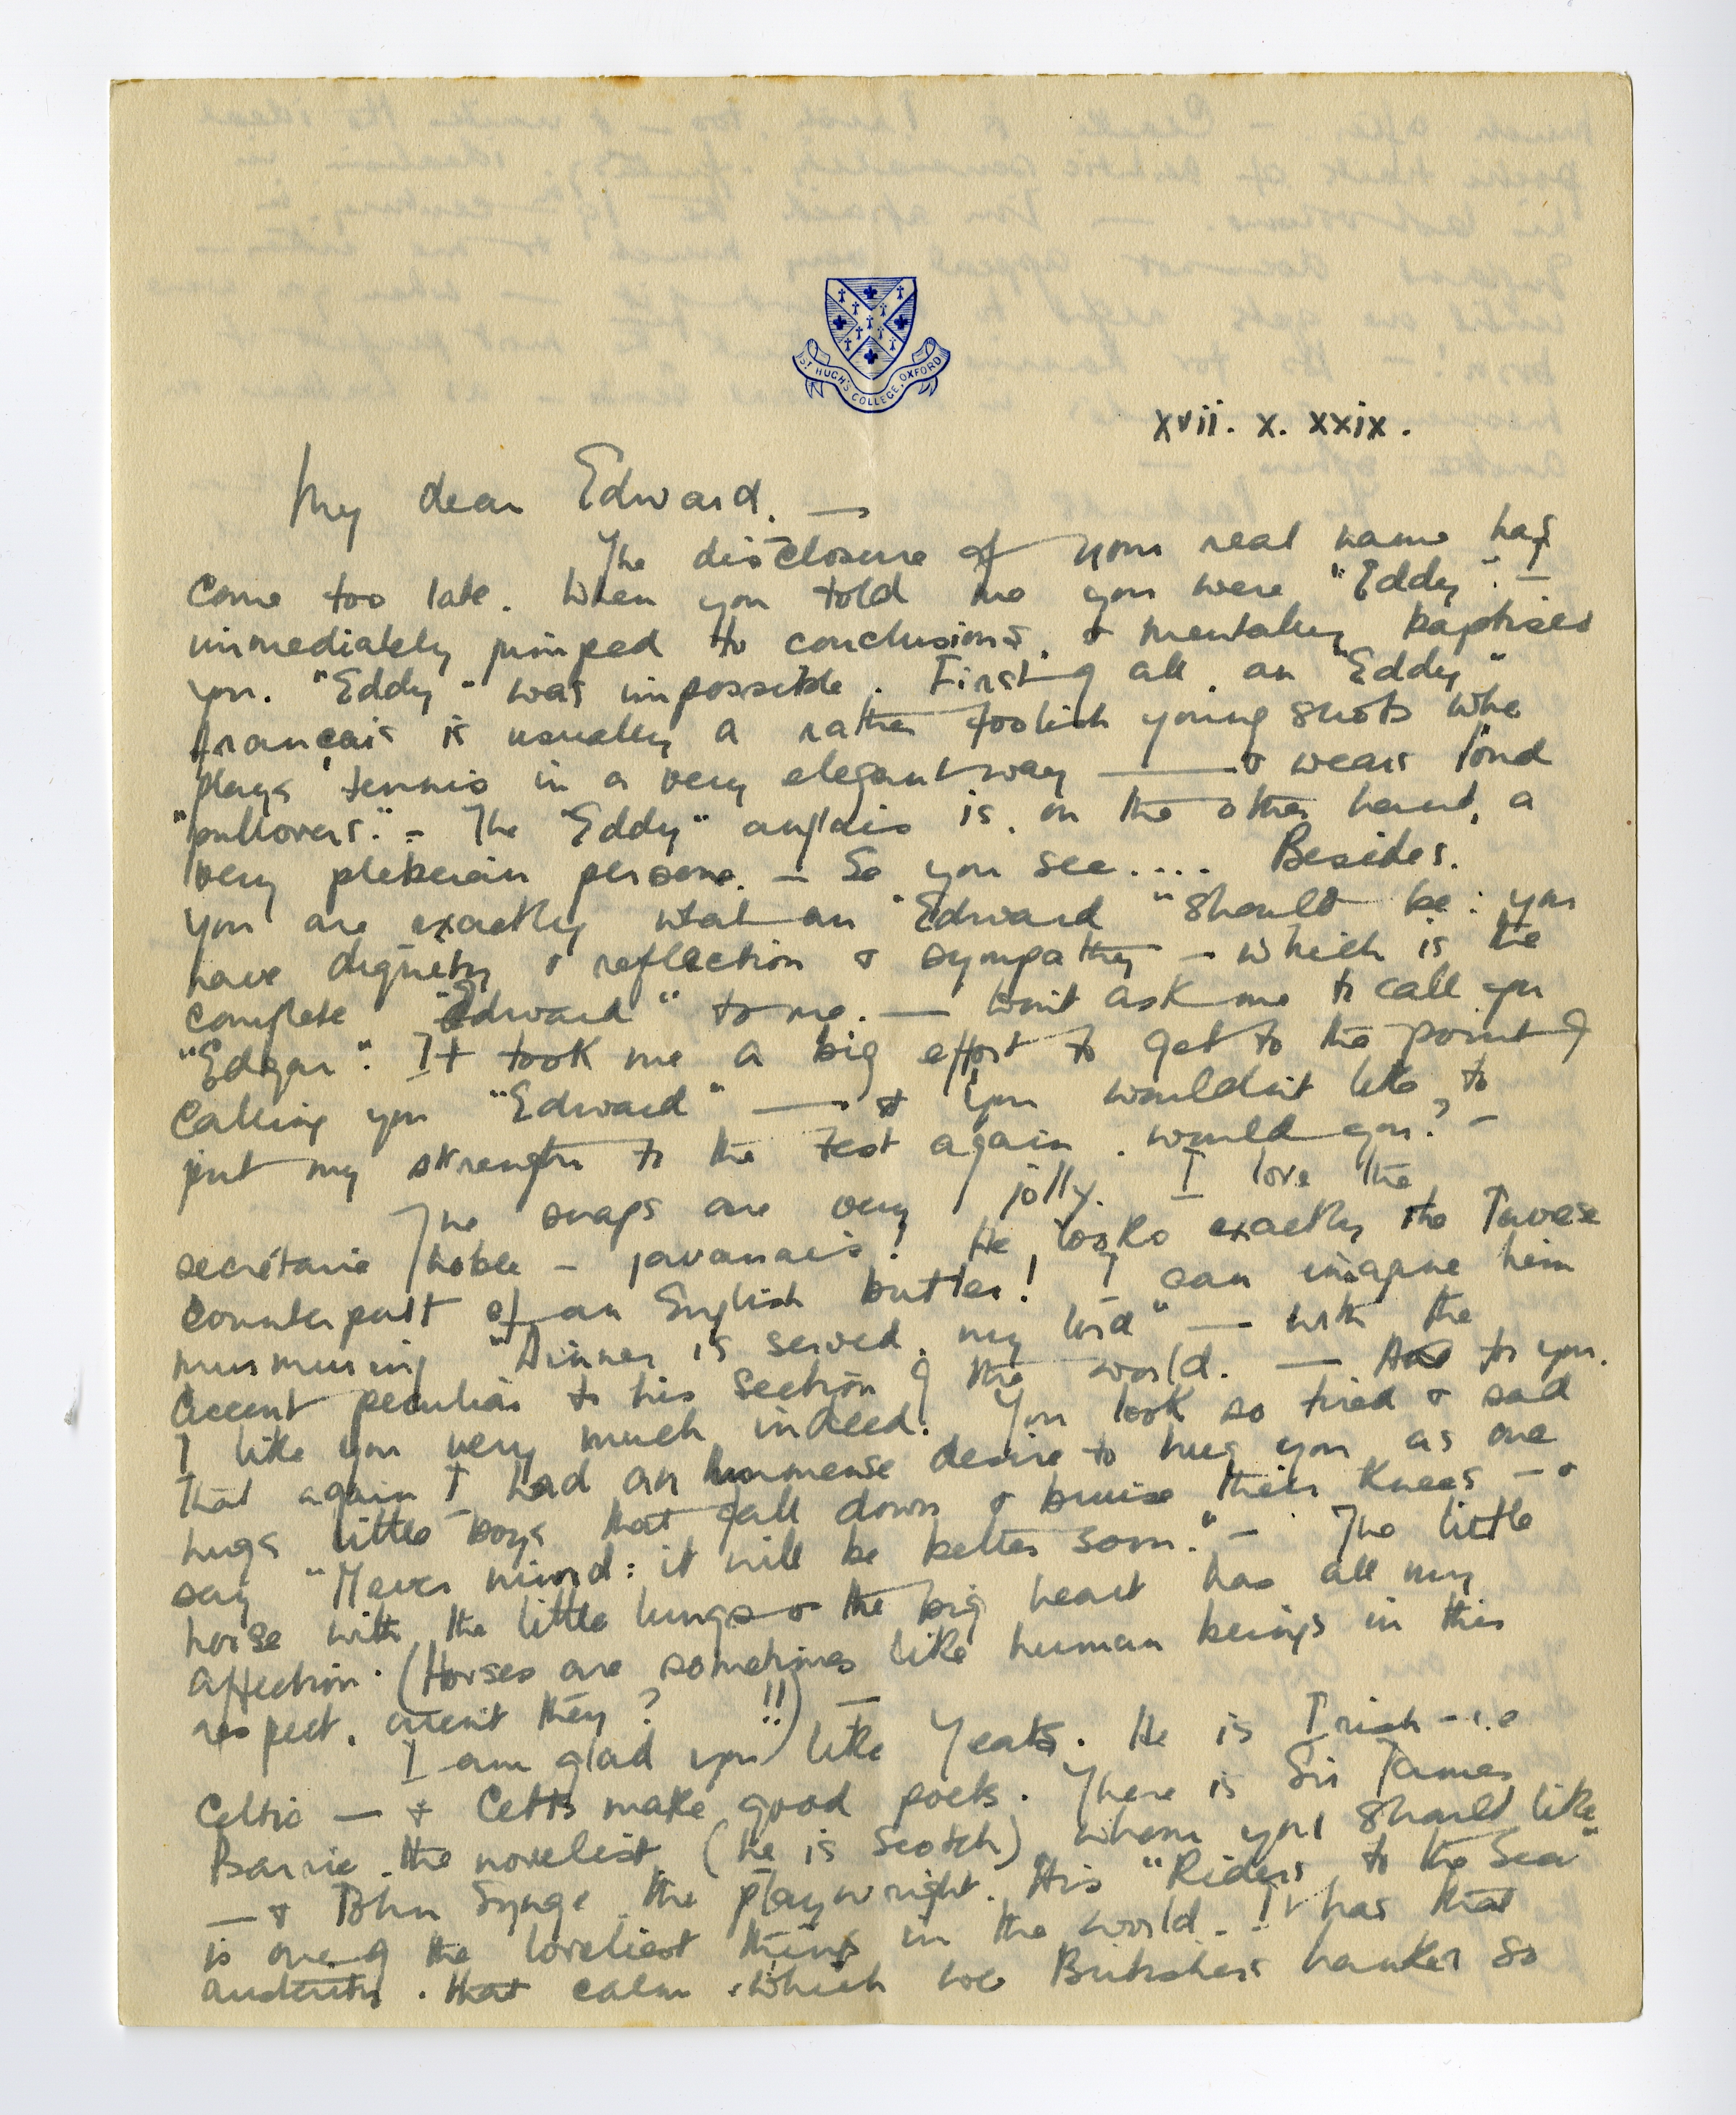 ST HUGH'S COLLEGE, OXFORD
xvii. x. xxix.
My dear Edward. —
The disclosure of your real name has
come too late. When you told me you were "Eddy" I
immediately jumped to conclusions, & mentally baptised
you. "Eddy" was impossible. First of all, an "Eddy"
français is usually a rather foolish young who
plays tennis in a very elegant way — & wears loud
"pullovers." – The "Eddy" anglais is, on the other hand, a
very plebeian persone. – So you see.... Besides,
you are exactly what an "Edward" should be: you
have dignity & reflection & sympathy – which is the
complete "Edward" to me. — Won't ask me to call you
"Edgar". It took me a big effort to get to the point of
calling you "Edward" — & you wouldn't like to
put my strength to the test again, would you? –
The snaps are very jolly. I love the
secrétaire noble – javanais! He looks exactly the Javese
counterpart of an English butler! I can imagine him
murmuring "Dinner is served, my lord" — with the
accent peculiar to his section of the world. — As to you,
I like you very much indeed. You look so tired & sad
that again I had an immense desire to hug you as one
hugs little boys that fall down & bruise their knees – &
say "Never mind: it will be better soon." – The little
horse with the little lungs & the big heart has all my
affection. (Horses are sometimes like human beings in this
respect, aren't they? !!) —
I am glad you like Yeats. He is Irish – i.e
Celtic — & Celts make good poets. There is Sir James
Barrie, the novelist (he is Scotch) whom you should like
— & John Synge, the playwright. His "Riders to the Sea"
is one of the loveliest things in the world. – It has that
austerity, that calm, which we Britishers hanker so